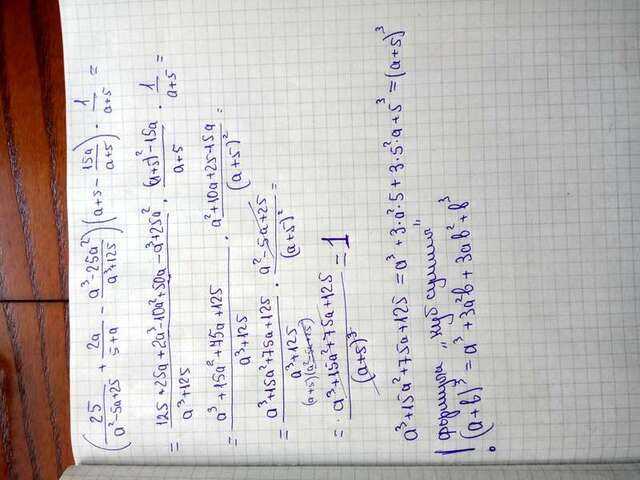 (25/(a²-5a+25) + 2a/(5+a) - (a³-25a²)/(a³+125)) (a+5 - 15a/(a+5)) · 1/(a+5) =
= (125+25a+2a³-10a²+50a-a³+25a²)/(a³+125) · ((a+5)²-15a)/(a+5) · 1/(a+5)
= (a³+15a²+75a+125)/(a³+125) · (a²+10a+25-15a)/(a+5)² =
= (a³+15a²+75a+125)/(a³+125) · (a²-5a+25)/(a+5)² =
(a+5)(a²-5a+25)
= (a³+15a²+75a+125)/(a+5)³ = 1
a³+15a²+75a+125 = a³+3·a²·5+3·5²·a+5³ = (a+5)³
формула „куб суммы"
(a+b)³ = a³+3a²b+3ab²+b³